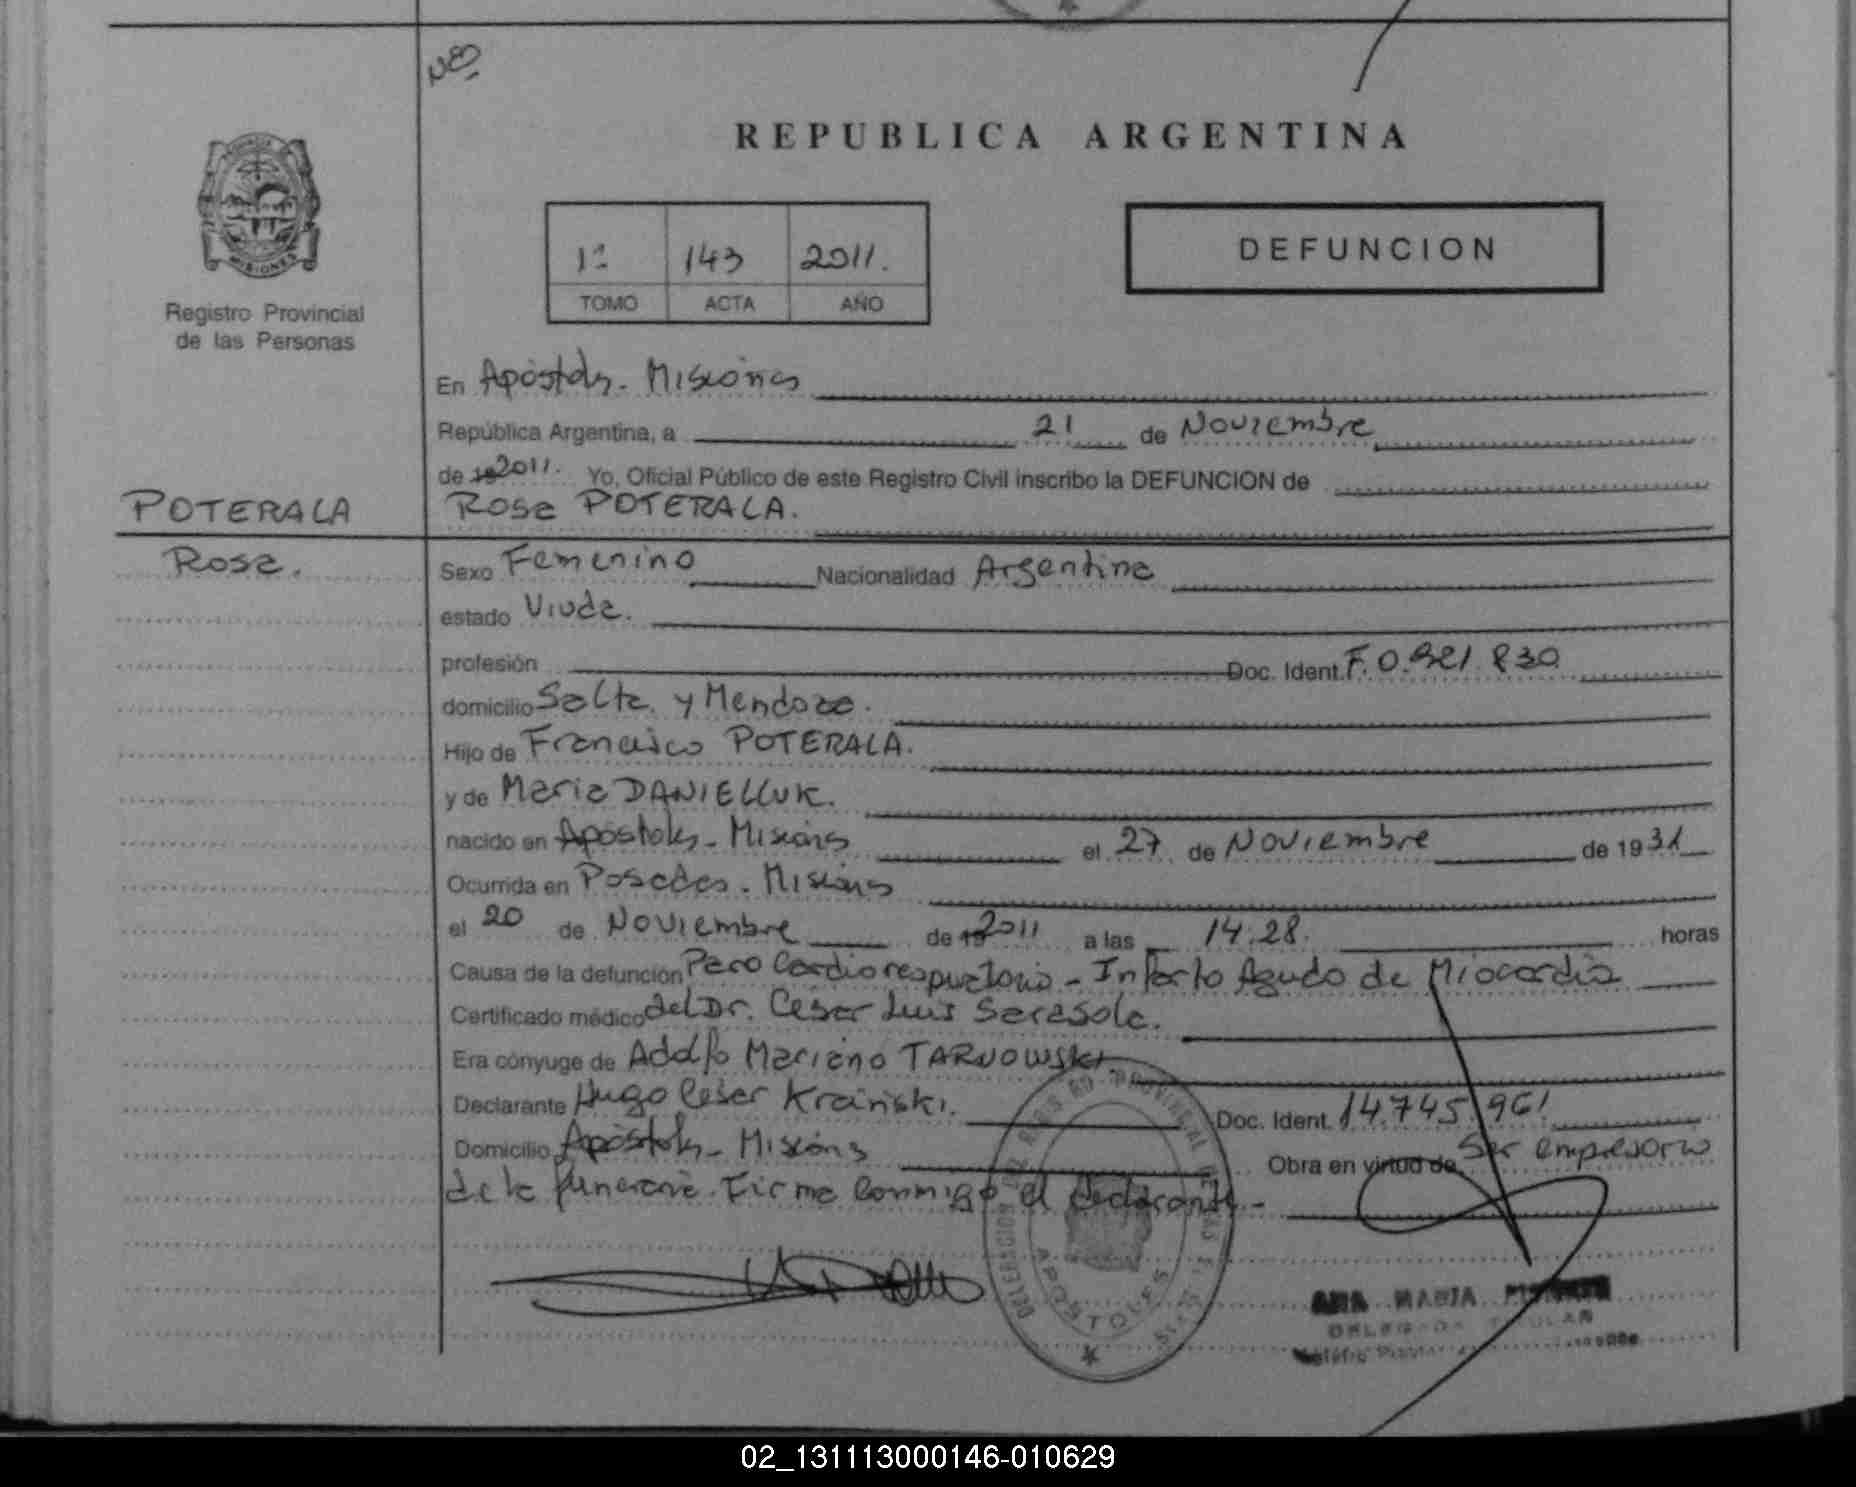 Nº
REPUBLICA ARGENTINA
MISIONES
Registro Provincial
de las Personas
1º 143 2011.
TOMO ACTA AÑO
DEFUNCION
En Apóstoles - Misiones
República Argentina, a 21 de Noviembre
de 19 2011. Yo, Oficial Público de este Registro Civil inscribo la DEFUNCION de
POTERALA Rosa POTERALA.
Rosa. Sexo Femenino Nacionalidad Argentina
estado Viuda.
profesión Doc. Ident. F. 0.821.830
domicilio Salta y Mendoza.
Hijo de Francisco POTERALA.
y de Maria DANIELLUK.
nacido en Apóstoles - Misiones el 27 de Noviembre de 1931
Ocurrida en Posadas. Misiones
el 20 de Noviembre de 19 2011 a las 14.28. horas
Causa de la defunción Paro Cardiorespiratorio - Infarto Agudo de Miocardio
Certificado médico del Dr. César Luis Sarasola.
Era cónyuge de Adolfo Mariano TARNOWSKI
Declarante Hugo César Krainski. Doc. Ident. 14.745.961
Domicilio Apóstoles - Misiones Obra en virtud de Ser empresario
de la funeraria. Firma conmigo el declarante.-
APOSTOLES
ANA MARIA
02_131113000146-010629